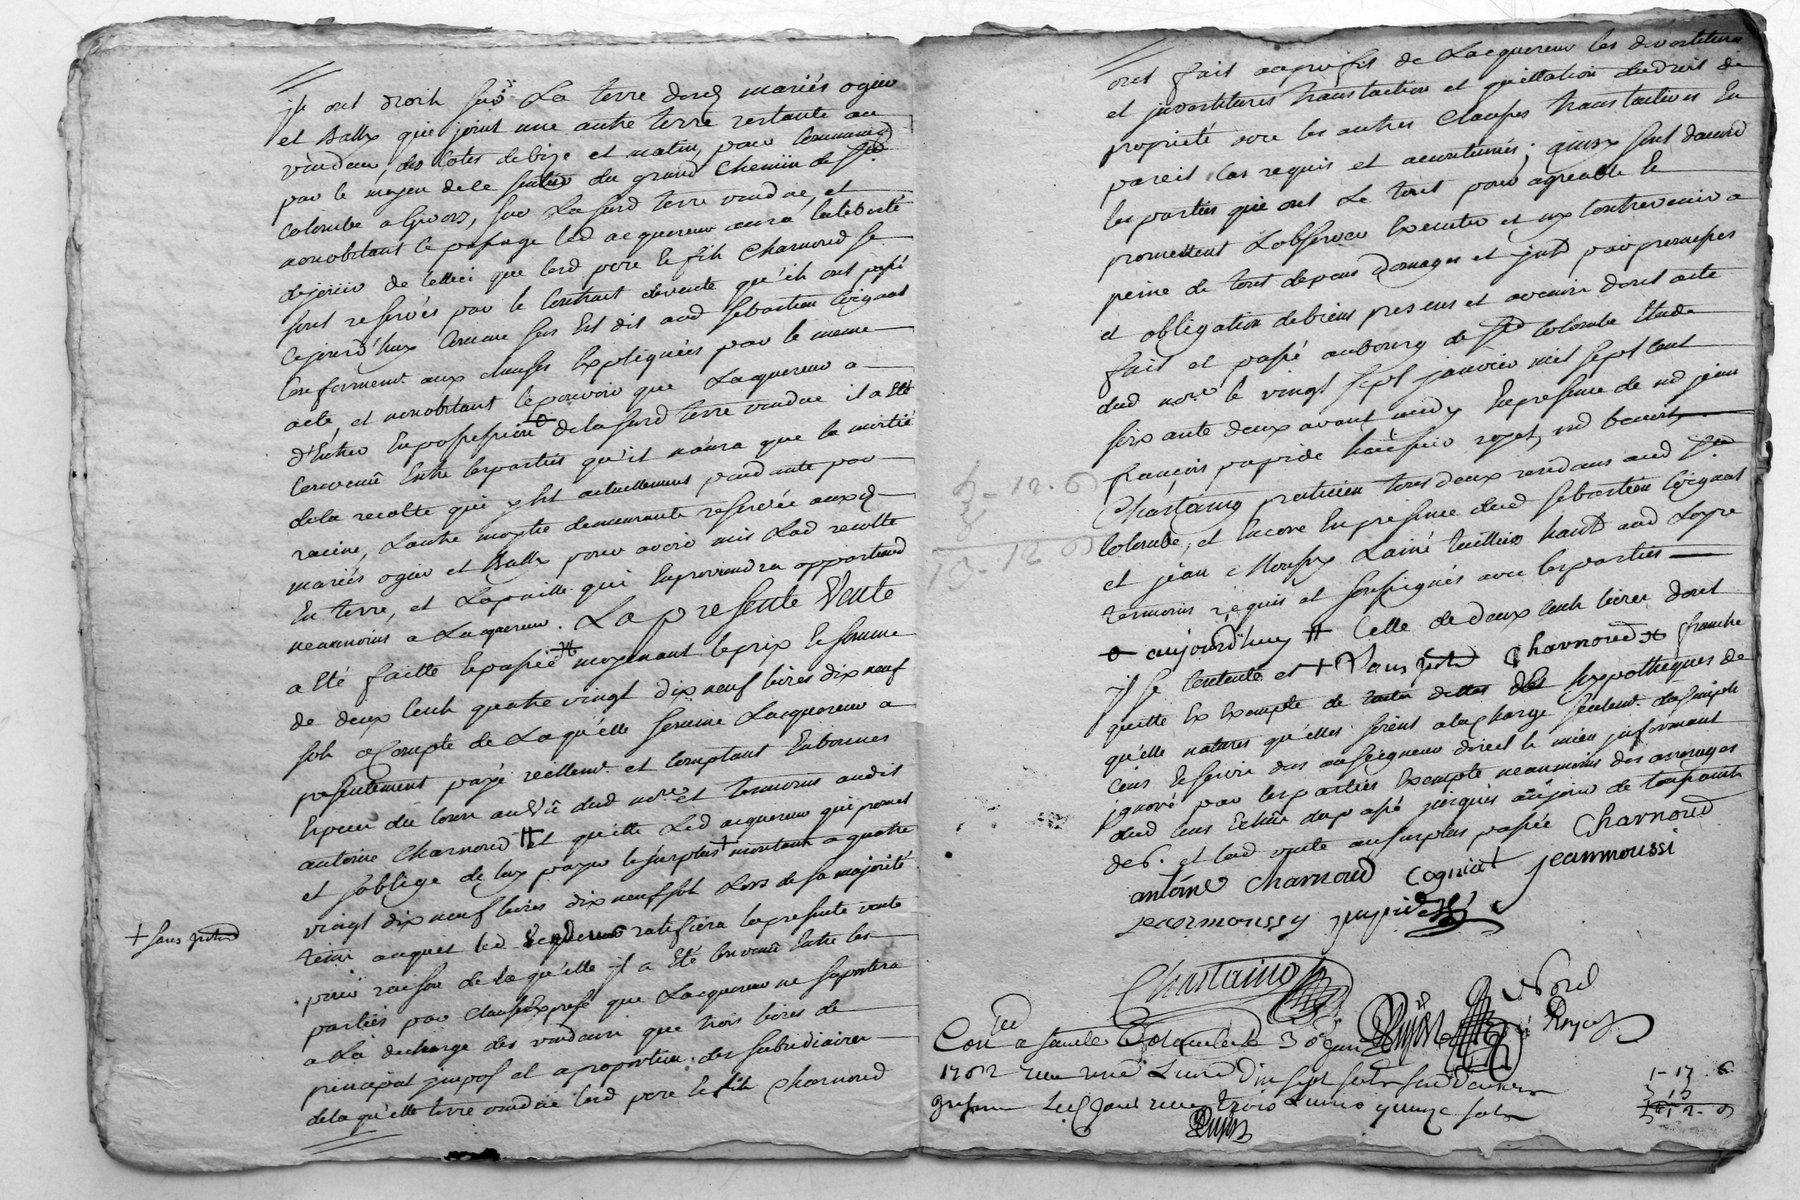 ils ont droit sur La terre desd mariés ogier
et Ballx qui joint une autre terre restante au
vendeur, des cotés debize et matin, pour
par le moyen de le sentier du grand Chemin de Ste
Colombe a Givors, sur La susd terre vendue, et
nonobstant ce passage Led acquereur aura laliberté
dejouir de cellecy que lesd pere Et fils Charnoud se
sont reservés par le Contract devente qu'ils ont passé
cejourd'huy comme sus Est dit aud Sebastien Cognat
Conformemt. aux clauses Expliquées par le meme
acte, et nonobstant lepouvoir que Lacquereur a
d'Entrer Enpossession dela susd terre vendue il a Eté
Convenû Entre lesparties qu'il n'aura que la moitié
dela recolte qui y Est actuellement pendante par
racine, Lautre moytié demeurante reservée auxd
mariés ogier et Ballx pour avoir mis Lad recolte
En terre, et Lapaille qui Enproviendra appartiend
neanmoins a Lacquereur. La presente Vente
a Eté faitte Et passée # moyenant leprix Et somme
de deux Cents quatre vingt dix neuf livres dix neuf
sols acompte de Laqu'elle somme Lacquereur a
presentement payé réellemt. et comptant Enbonnes
Especes du cours au Vû dud nore. et temoins audit
antoine Charnoud # et quitte Led acquereur qui promet
et s'oblige de luy payer lesurplus + montant a quatre
vingt dix neuf livres dix neuf sols Lors de sa majorité
tems auquel led ratifiera lapresente vente
pour raison de laqu'elle il a Eté convenû Entre les
parties par clause Expresse que Lacquereur ne suportera
a La decharge des vendeurs que trois livres de
principal imposé et aproportion des subsidiaires
dela qu'elle terre vendue lesd pere Et fils Charnoud
+ sans interet
ont fait auprofit de Lacquereur les devestitures
et investitures translaction et quittation dudroit de
propriété avec les autres Clauses translatives En
pareil cas requis et acoutumés; ainsy sont dacord
les parties qui ont Le tout pour agreable Et
promettent Lobserver Executer et ny contrevenir a
peine de tous depens domages et intts par promesses
et obligation debiens presens et avenir dont acte
fait et passé aubourg de Ste Colombe Etude
dud nore le vingt sept janvier mil sept cent
soixante deux avant midy Enpresence de me jean
françois papire huissier royal, me benoit
Chastaing praticien tous deux residans aud Ste
Colombe, et Encore Enpresence dud Sebastien Cognat
et jean Moussy Lainé Habt aud Loyre
temoins requis et soussignés avec lesparties
aujourd'huy # Celle de deux cents livres dont
il se contente et + sans interet Charnoud # franche
quitte Et Exempte de toutes dettes et hypotheques de
qu'elle natures qu'elles soient alacharge seulemt. dusimple
Cens Et servis dus auseigneur direct le mieu informant
ignoré par lesparties Exempte neanmoins des arrerages
dud Cens Echus dupassé jusques aujour de toussaint
der. et lad vente ausurplus passée Charnoud
antoine charnoud Cogniat jeanmoussi
jeanmoussy
Chastaing
Con a sainte Colombe le 30 Janv
1762 une Livre Dix sept sols six deniers
trois Livres quinze sols
1-17.6
3 15
5-12-6